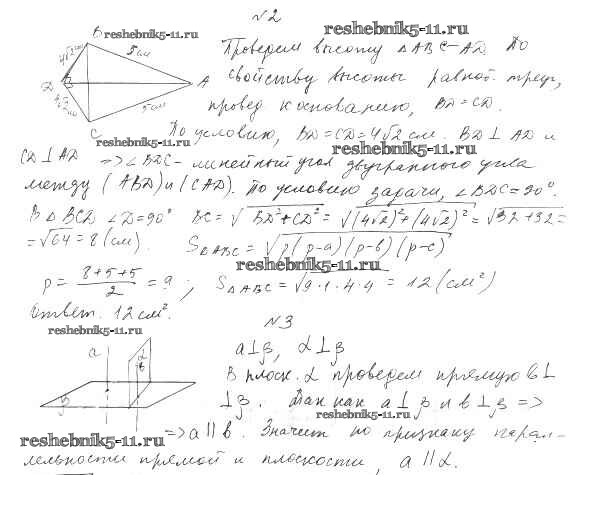 N2
reshebnik5-11.ru
reshebnik5-11.ru
B
5 см
4√2 см
D
A
4√2 см
5 см
C
reshebnik5-11.ru
Проведем высоту △ABC – AD. По
свойству высоты равноб. треуг,
провед к основанию, BD = CD.
По условию, BD = CD = 4√2 см. BD ⊥ AD и
reshebnik5-11.ru
CD ⊥ AD => ∠BDC – линейный угол двугранного угла
между (ABD) и (CAD). По условию задачи, ∠BDC = 90°.
В △BCD ∠D = 90° BC = √BD²+CD² = √(4√2)²+(4√2)² = √32+32 =
= √64 = 8 (см). S△ABC = √p(p-a)(p-b)(p-c)
reshebnik5-11.ru
p = 8+5+5/2 = 9 ; S△ABC = √9·1·4·4 = 12 (см²)
Ответ. 12 см².
reshebnik5-11.ru
N3
a
α
β
a⊥β, α⊥β
В плоск. α проведем прямую b⊥
⊥β. Так как a⊥β и b⊥β =>
reshebnik5-11.ru
=> a ∥ b. Значит по признаку парал-
reshebnik5-11.ru
лельности прямой и плоскости, a ∥ α.